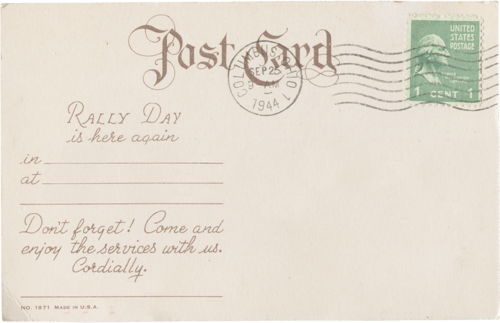 Post Card
COLUMBUS, OHIO 1
SEP 25
9 AM
1944
UNITED
STATES
POSTAGE
1 CENT 1
RALLY DAY
is here again
in
at
Don't forget! Come and
enjoy the services with us.
Cordially,
NO. 1871 MADE IN U.S.A.